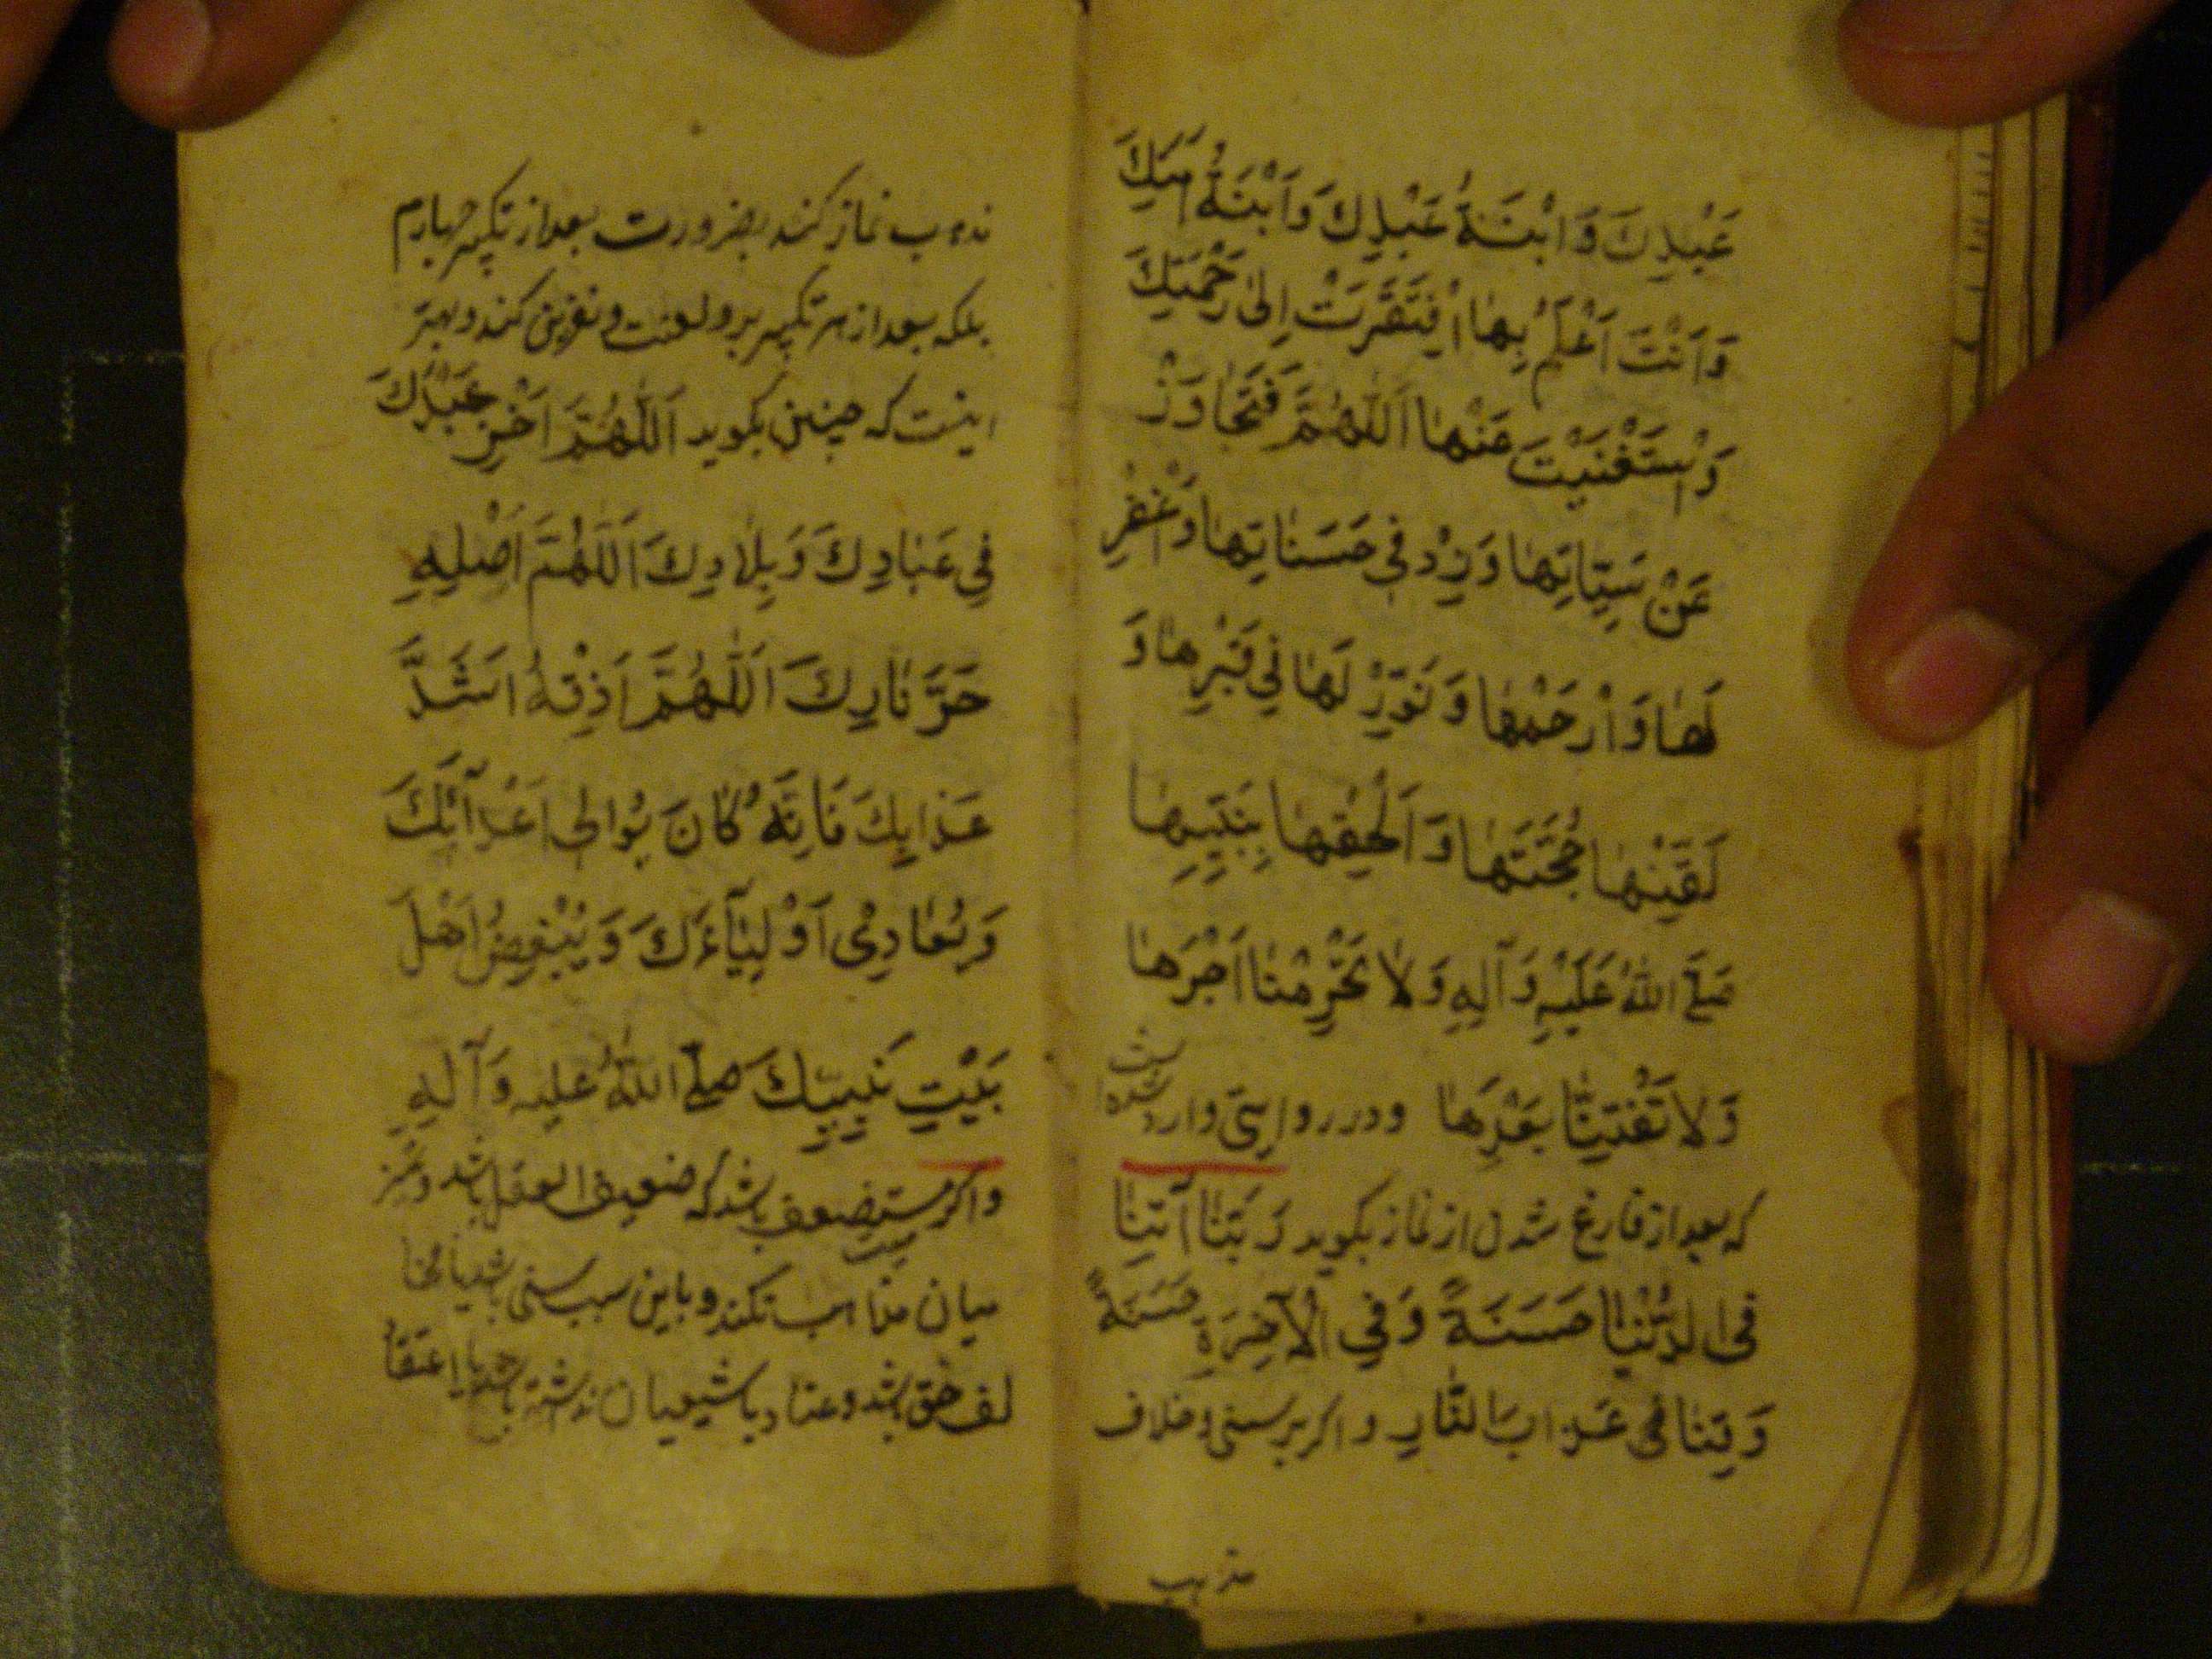 عَبْدِكَ وَابْنَةُ عَبْدِكَ وَابْنَةُ اَمَتِكَ
وَاَنْتَ اَعْلَمُ بِهٰا اِفْتَقَرَتْ اِلىٰ رَحْمَتِكَ
وَاسْتَغْنَيْتَ عَنْهٰا اَللّٰهُمَّ فَتَجٰاوَزْ
عَنْ سَيِّئٰاتِهٰا وَزِدْ فِي حَسَنٰاتِهٰا وَاغْفِرْ
لَهٰا وَارْحَمْهٰا وَنَوِّرْ لَهٰا فِي قَبْرِهٰا وَ
لَقِّنْهٰا حُجَّتَهٰا وَاَلْحِقْهٰا بِنَبِيِّهٰا
صَلَّى اللّٰهُ عَلَيْهِ وَآلِهِ وَلاٰ تَحْرِمْنٰا اَجْرَهٰا
وَلاٰ تَفْتِنّٰا بَعْدَهٰا ودر روايتى وارد شده است
كه بعد از فارغ شدن از نماز بكويد رَبَّنٰا آتِنٰا
فِى الدُّنْيٰا حَسَنَةً وَفِي الْآخِرَةِ حَسَنَةً
وَقِنٰا عَذابَ النّٰارِ واكر بر سنى وخلاف
مذهب
مذهب نماز كند بضرورت بعد از تكبير چهارم
بلكه بعد از هر تكبير برو لعنت ونفرين كند وبهتر
اينست كه چنين بكويد اَللّٰهُمَّ اَخْزِ عَبْدَكَ
فِي عِبٰادِكَ وَبِلاٰدِكَ اَللّٰهُمَّ اَصْلِهِ
حَرَّ نٰارِكَ اَللّٰهُمَّ اَذِقْهُ اَشَدَّ
عَذابِكَ فَاِنَّهُ كٰانَ يُوالِى اَعْدآئَكَ
وَيُعٰادِى اَوْلِيٰآءَكَ وَيُبْغِضُ اَهْلَ
بَيْتِ نَبِيِّكَ صَلَّى اللّٰهُ عليه وَآلِهِ
واكر مستضعف باشد كه ضعيف العقل باشد وتميز
ميان مذاهب نكند وباين سبب سنى باشد يا مخا
لف حق باشد وعناد با شيعيان نداشته باشد يا اعتقاد